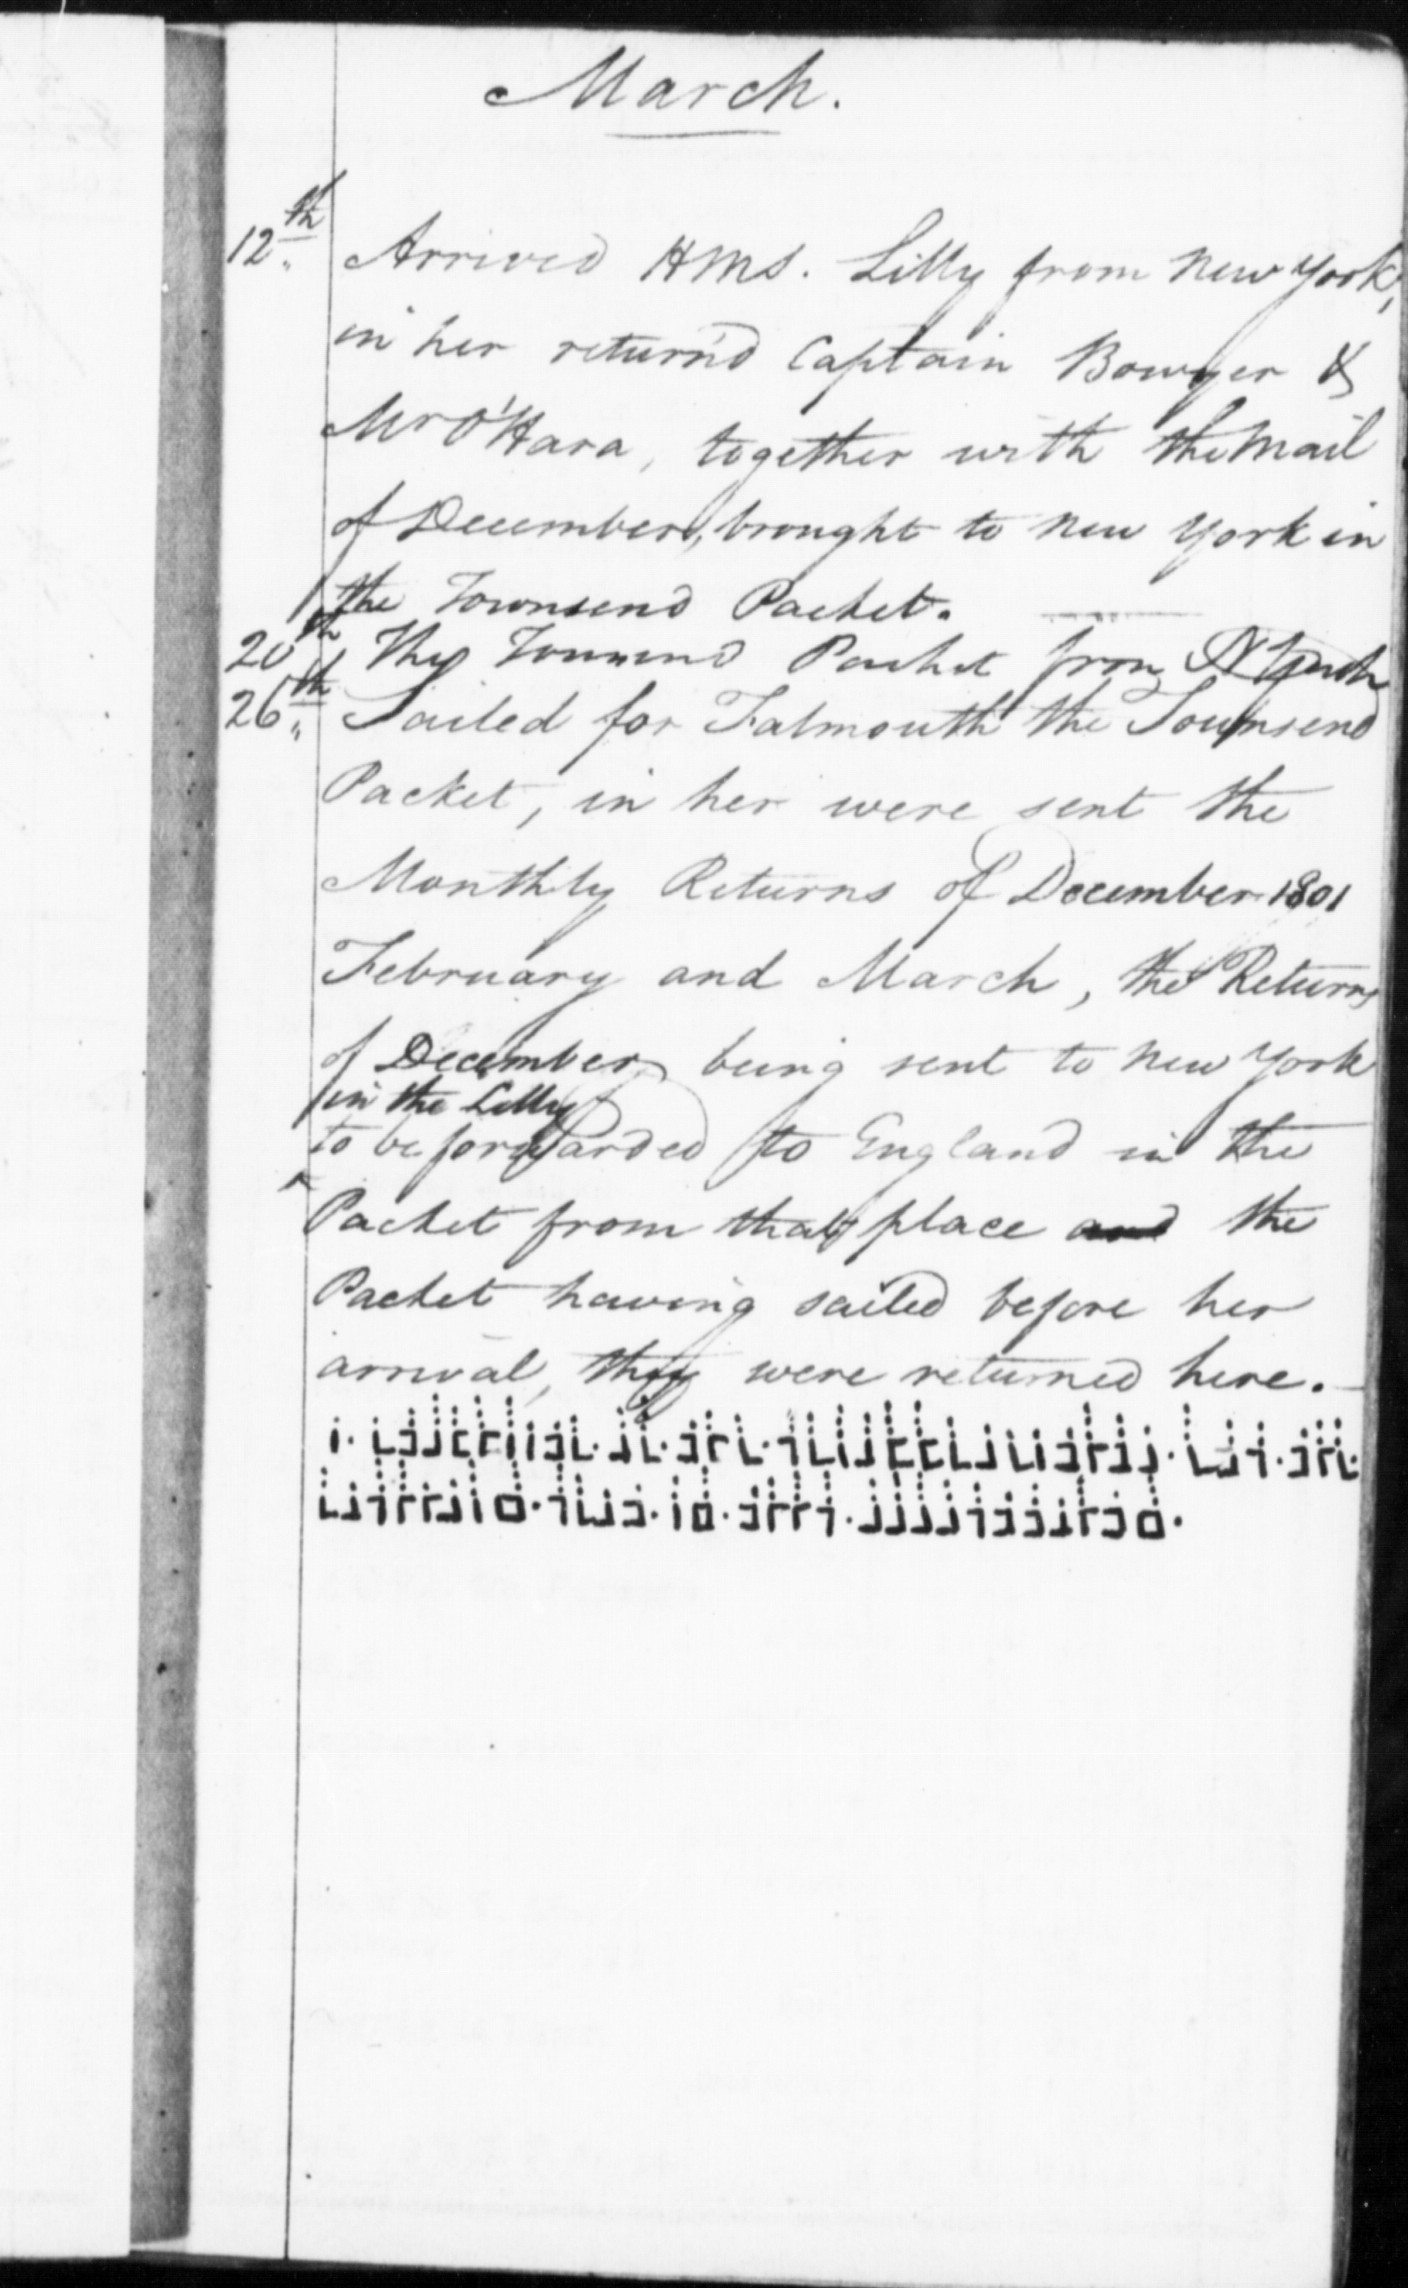 March.
12th Arrived HMS. Lilly from New York,
in her return'd Captain Bowyer &
Mr O'Hara, together with the Mail
of December, brought to New York in
the Townsend Packet.
20th The Townsend Packet from N York
26th Sailed for Falmouth the Townsend
Packet, in her were sent the
Monthly Returns of December 1801
February and March, the Returns
of December being sent to New York
in the Lilly
to be forwarded to England in the
Packet from that place and the
Packet having sailed before her
arrival, they were returned here.